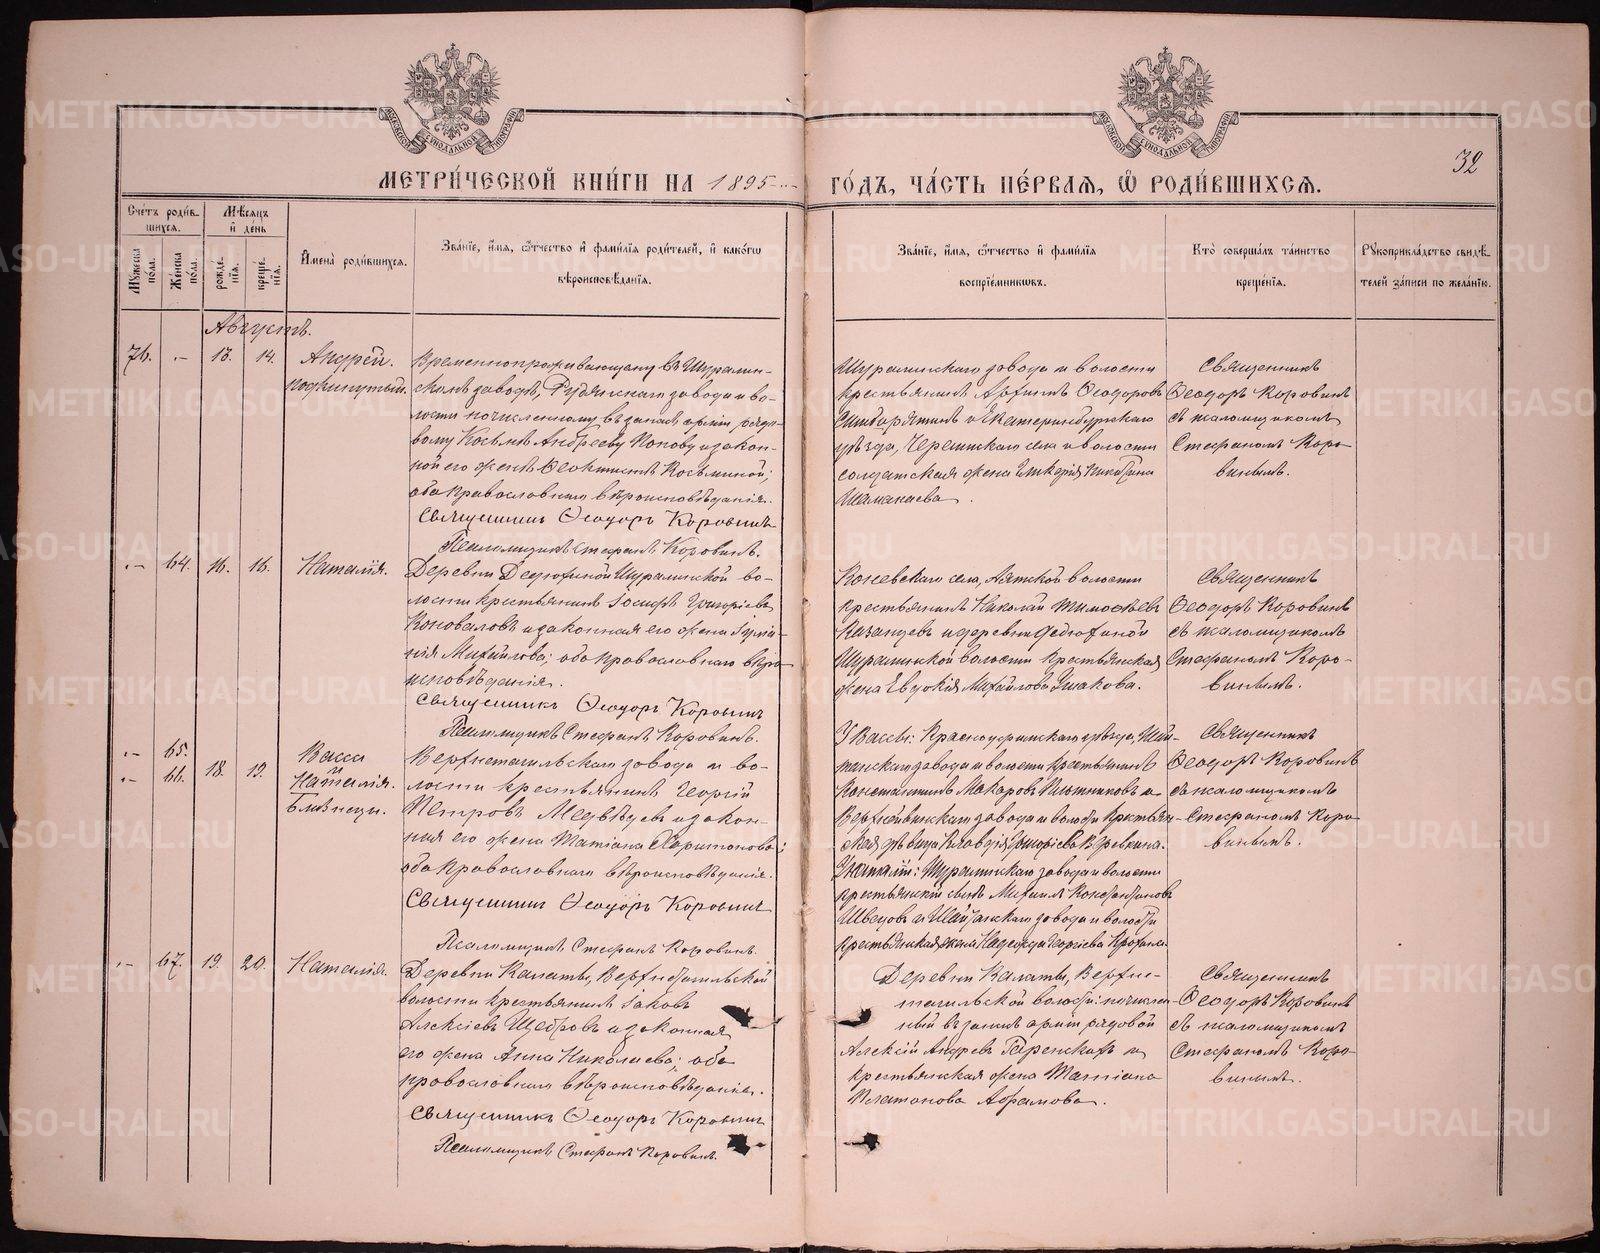 32
МЕТРИ́ЧЕСКОЙ КНИ́ГИ НА 1895 ГО́ДЪ, ЧА́СТЬ ПЕ́РВАЯ, Ѡ҆ РОДИ́ВШИХСЯ.
Сче́тъ роди́в-
шихся.
Мꙋ́жеска пола.
Же́нска пола.
Мѣ́сяцъ
и҆ де́нь
рожде́-
нїя.
креще́-
нїя.
И҆мена̀ роди́вшихся.
Зва́нїе, и҆́мя, ѻ҆́тчество и҆ фами́лїя роди́телей, и҆ како́гѡ
вѣроисповѣ́данїя.
Зва́нїе, и҆́мя, ѻ҆́тчество и҆ фами́лїя
воспрїе́мниковъ.
Кто̀ соверша́лъ та́инство
креще́нїя.
Рꙋкоприкла́дство свидѣ́-
телей за́писи по жела́нїю.
Августъ.
76. - 13. 14. Андрей.
подкинутый.
Временнопроживающему въ Шуралин-
скомъ заводѣ, Рудянскаго завода и во-
лости почисленному въ запасъ арміи рядо-
вому Косьмѣ Андрееву Попову и закон-
ной его женѣ Ѳеоктистѣ Косьминой;
оба православнаго вѣроисповѣданія.
Священникъ Ѳеодоръ Коровинъ
Псаломщикъ Стефанъ Коровинъ.
Шуралинскаго завода и волости
крестьянинъ Ѳеодоровъ
и Екатеринбургскаго
уѣзда, села и волости
солдатская жена Гликерія Никитина
Шаманаева.
Священникъ
Ѳеодоръ Коровинъ
съ псаломщикомъ
Стефаномъ Коро-
винымъ.
- 64. 16. 16. Наталія.
Деревни Федюниной Шуралинской во-
лости крестьянинъ Іосифъ Григорьевъ
Коноваловъ и законная его жена Іулиа-
нія Михайлова; оба православнаго вѣро-
исповѣданія.
Священникъ Ѳеодоръ Коровинъ
Псаломщикъ Стефанъ Коровинъ.
Коневскаго села, Аятской волости
крестьянинъ Николай Тимоѳеевъ
Казанцевъ и деревни Федюниной
Шуралинской волости крестьянская
жена Евдокія Михайлова Ушакова.
Священникъ
Ѳеодоръ Коровинъ
съ псаломщикомъ
Стефаномъ Коро-
винымъ.
- 65.
- 66. 18. 19. Васса
и
Наталія.
близнецы.
Верхнетагильскаго завода и во-
лости крестьянинъ Георгій
Петровъ Медвѣдевъ и закон-
ная его жена Татіана Харитонова;
оба православнаго вѣроисповѣданія.
Священникъ Ѳеодоръ Коровинъ
Псаломщикъ Стефанъ Коровинъ.
У Вассы: Красноуфимскаго уѣзда, Шай-
танскаго завода и волости крестьянинъ
Константинъ Макаровъ Плотниковъ и
Верхнейвинскаго завода и волости крестьян-
ская дѣвица Клавдія Григорьева
У Наталіи: Шуралинскаго завода и волости
крестьянскій сынъ Михаилъ Константиновъ
Швецовъ и Шайтанскаго завода и волости
крестьянская жена Надежда Георгіева
Священникъ
Ѳеодоръ Коровинъ
съ псаломщикомъ
Стефаномъ Коро-
винымъ.
- 67. 19. 20. Наталія.
Деревни Калаты, Верхнетагильской
волости крестьянинъ Іаковъ
Алексіевъ Щедровъ и законная
его жена Анна Николаева; оба
православнаго вѣроисповѣданія.
Священникъ Ѳеодоръ Коровинъ
Псаломщикъ Стефанъ Коровинъ.
Деревни Калаты, Верхне-
тагильской волости: почислен-
ный въ запасъ арміи рядовой
Алексій Андреевъ и
крестьянская жена Татіана
Платонова Абрамова.
Священникъ
Ѳеодоръ Коровинъ
съ псаломщикомъ
Стефаномъ Коро-
винымъ.
METRIKI.GASO-URAL.RU